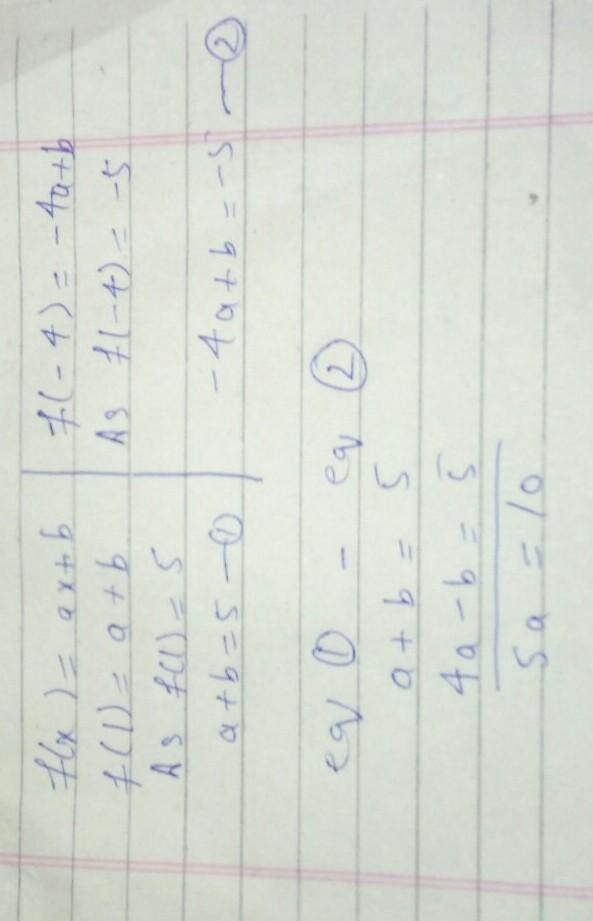 f(x) = ax+b
f(1) = a+b
As f(1) = 5
a+b=5 —①
f(-4) = -4a+b
As f(-4) = -5
-4a+b=-5 —②
eq ① - eq ②
a+b = 5
4a-b = 5
5a = 10